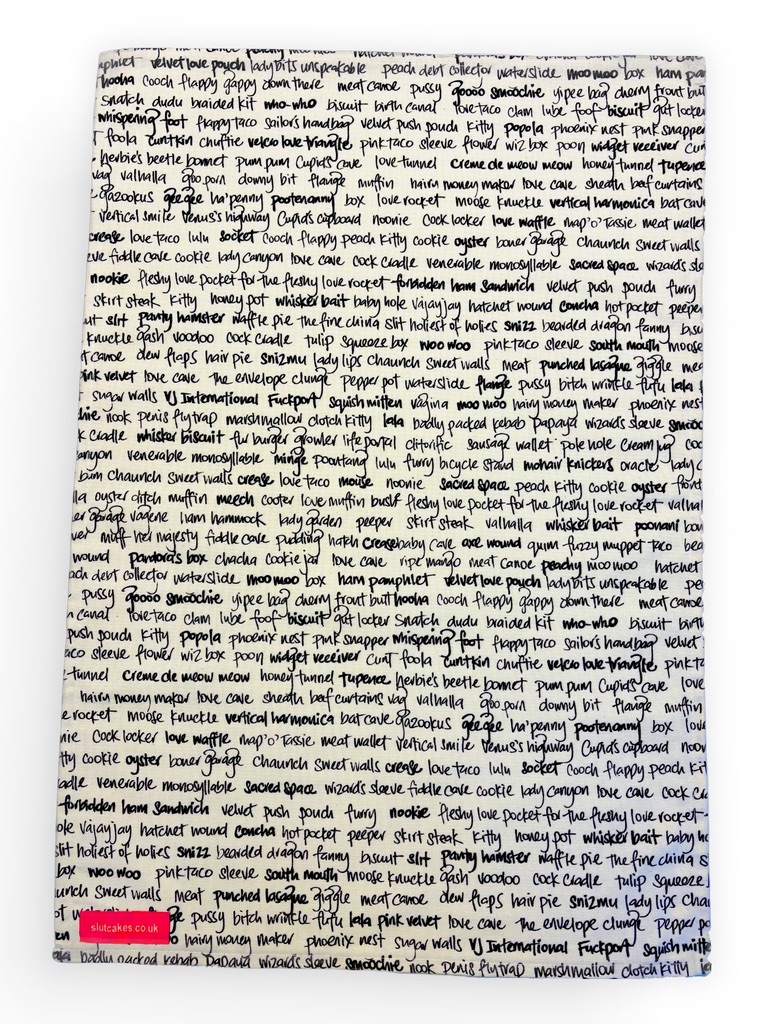 peachy moo moo hatchet wound
pamphlet velvet love pouch ladybits unspeakable peach debt collector waterslide moo moo box ham pam
hooha cooch flappy gappy down there meat canoe pussy goooo smoochie yipee bag cherry front butt
snatch dudu braided kit who-who biscuit birth canal foretaco clam lube foof biscuit gut locker
whispering foot flappy taco sailor's handbag velvet push pouch kitty popola phoenix nest pink snapper
foola cuntkin chuftie velcro love triangle pink taco sleeve flower wiz box poon widget receiver cun
herbie's beetle bonnet pum pum Cupid's cave love tunnel creme de meow meow honey tunnel tupence
vag valhalla goo.porn downy bit flange muffin hairy money maker love cave sheath beef curtains
gazookus gee gee ha'penny pootenanny box love rocket moose knuckle vertical harmonica bat cave
vertical smile Venus's highway Cupid's cupboard noonie cock locker love waffle map 'o' Tassie meat wallet
crease love taco lulu socket cooch flappy peach kitty cookie oyster boner garage chaunch sweet walls
ve fiddle cave cookie lady canyon love cave cock cradle venerable monosyllable sacred space wizard's sle
nookie fleshy love pocket for the fleshy love rocket forbidden ham sandwich velvet push pouch furry
skirt steak kitty honey pot whisker bait baby hole vajayjay hatchet wound concha hot pocket peeper
uit slit panty hamster waffle pie the fine china slit holiest of holies snizz bearded dragon fanny bisu
knuckle gash voodoo cock cradle tulip squeeze box woo woo pink taco sleeve south mouth moose
t canoe dew flaps hair pie snizmu lady lips chaunch sweet walls meat punched lasagne giggle mea
pink velvet love cave the envelope clunge pepper pot waterslide flange pussy bitch wrinkle flufu lala
sugar walls VJ International Fuckport squish mitten vagina moo moo hairy money maker phoenix nest
hie nook penis flytrap marshmallow clotch kitty lala badly packed kebab papaya wizard's sleeve smooc
k cradle whisker biscuit fur burger growler life portal clitorific sausage wallet pole hole cream jug coc
anyon venerable monosyllable minge poontang lulu furry bicycle stand mohair knickers oracle lady c
bum chaunch sweet walls crease love taco mouse noonie sacred space peach kitty cookie oyster front
lla oyster ditch muffin meech cooter love muffin bush fleshy love pocket for the fleshy love rocket valhal
er garage vagene ham hammock lady garden peeper skirt steak valhalla whisker bait poonani bon
ver muff her majesty fiddle cave pudding hatch crease baby cave axe wound quim fuzzy muppet taco bea
wound pandora's box chacha cookie jar love cave ripe mango meat canoe peachy moo moo hatchet
ach debt collector waterslide moo moo box ham pamphlet velvet love pouch ladybits unspeakable pe
pussy goooo smoochie yipee bag cherry front butt hooha cooch flappy gappy down there meat canoe
h canal foretaco clam lube foof biscuit gut locker snatch dudu braided kit who-who biscuit birth
push pouch kitty popola phoenix nest pink snapper whispering foot flappy taco sailor's handbag velvet
aco sleeve flower wiz box poon widget receiver cunt foola cuntkin chuftie velcro love triangle pink t
tunnel creme de meow meow honey tunnel tupence herbie's beetle bonnet pum pum Cupid's cave love
hairy money maker love cave sheath beef curtains vag valhalla goo.porn downy bit flange muffin
e rocket moose knuckle vertical harmonica bat cave gazookus gee gee ha'penny pootenanny box love
nie cock locker love waffle map 'o' Tassie meat wallet vertical smile Venus's highway Cupid's cupboard noon
tty cookie oyster boner garage chaunch sweet walls crease love taco lulu socket cooch flappy peach kit
adle venerable monosyllable sacred space wizard's sleeve fiddle cave cookie lady canyon love cave cock cra
forbidden ham sandwich velvet push pouch furry nookie fleshy love pocket for the fleshy love rocket
ole vajayjay hatchet wound concha hot pocket peeper skirt steak kitty honey pot whisker bait baby ho
slit holiest of holies snizz bearded dragon fanny biscuit slit panty hamster waffle pie the fine china s
box woo woo pink taco sleeve south mouth moose knuckle gash voodoo cock cradle tulip squeeze
unch sweet walls meat punched lasagne giggle meat canoe dew flaps hair pie snizmu lady lips chau
pussy bitch wrinkle flufu lala pink velvet love cave the envelope clunge pepper po
slutcakes.co.uk
hairy money maker phoenix nest sugar walls VJ International Fuckport squish mitte
badly packed kebab papaya wizard's sleeve smoochie nook penis flytrap marshmallow clotch kitty